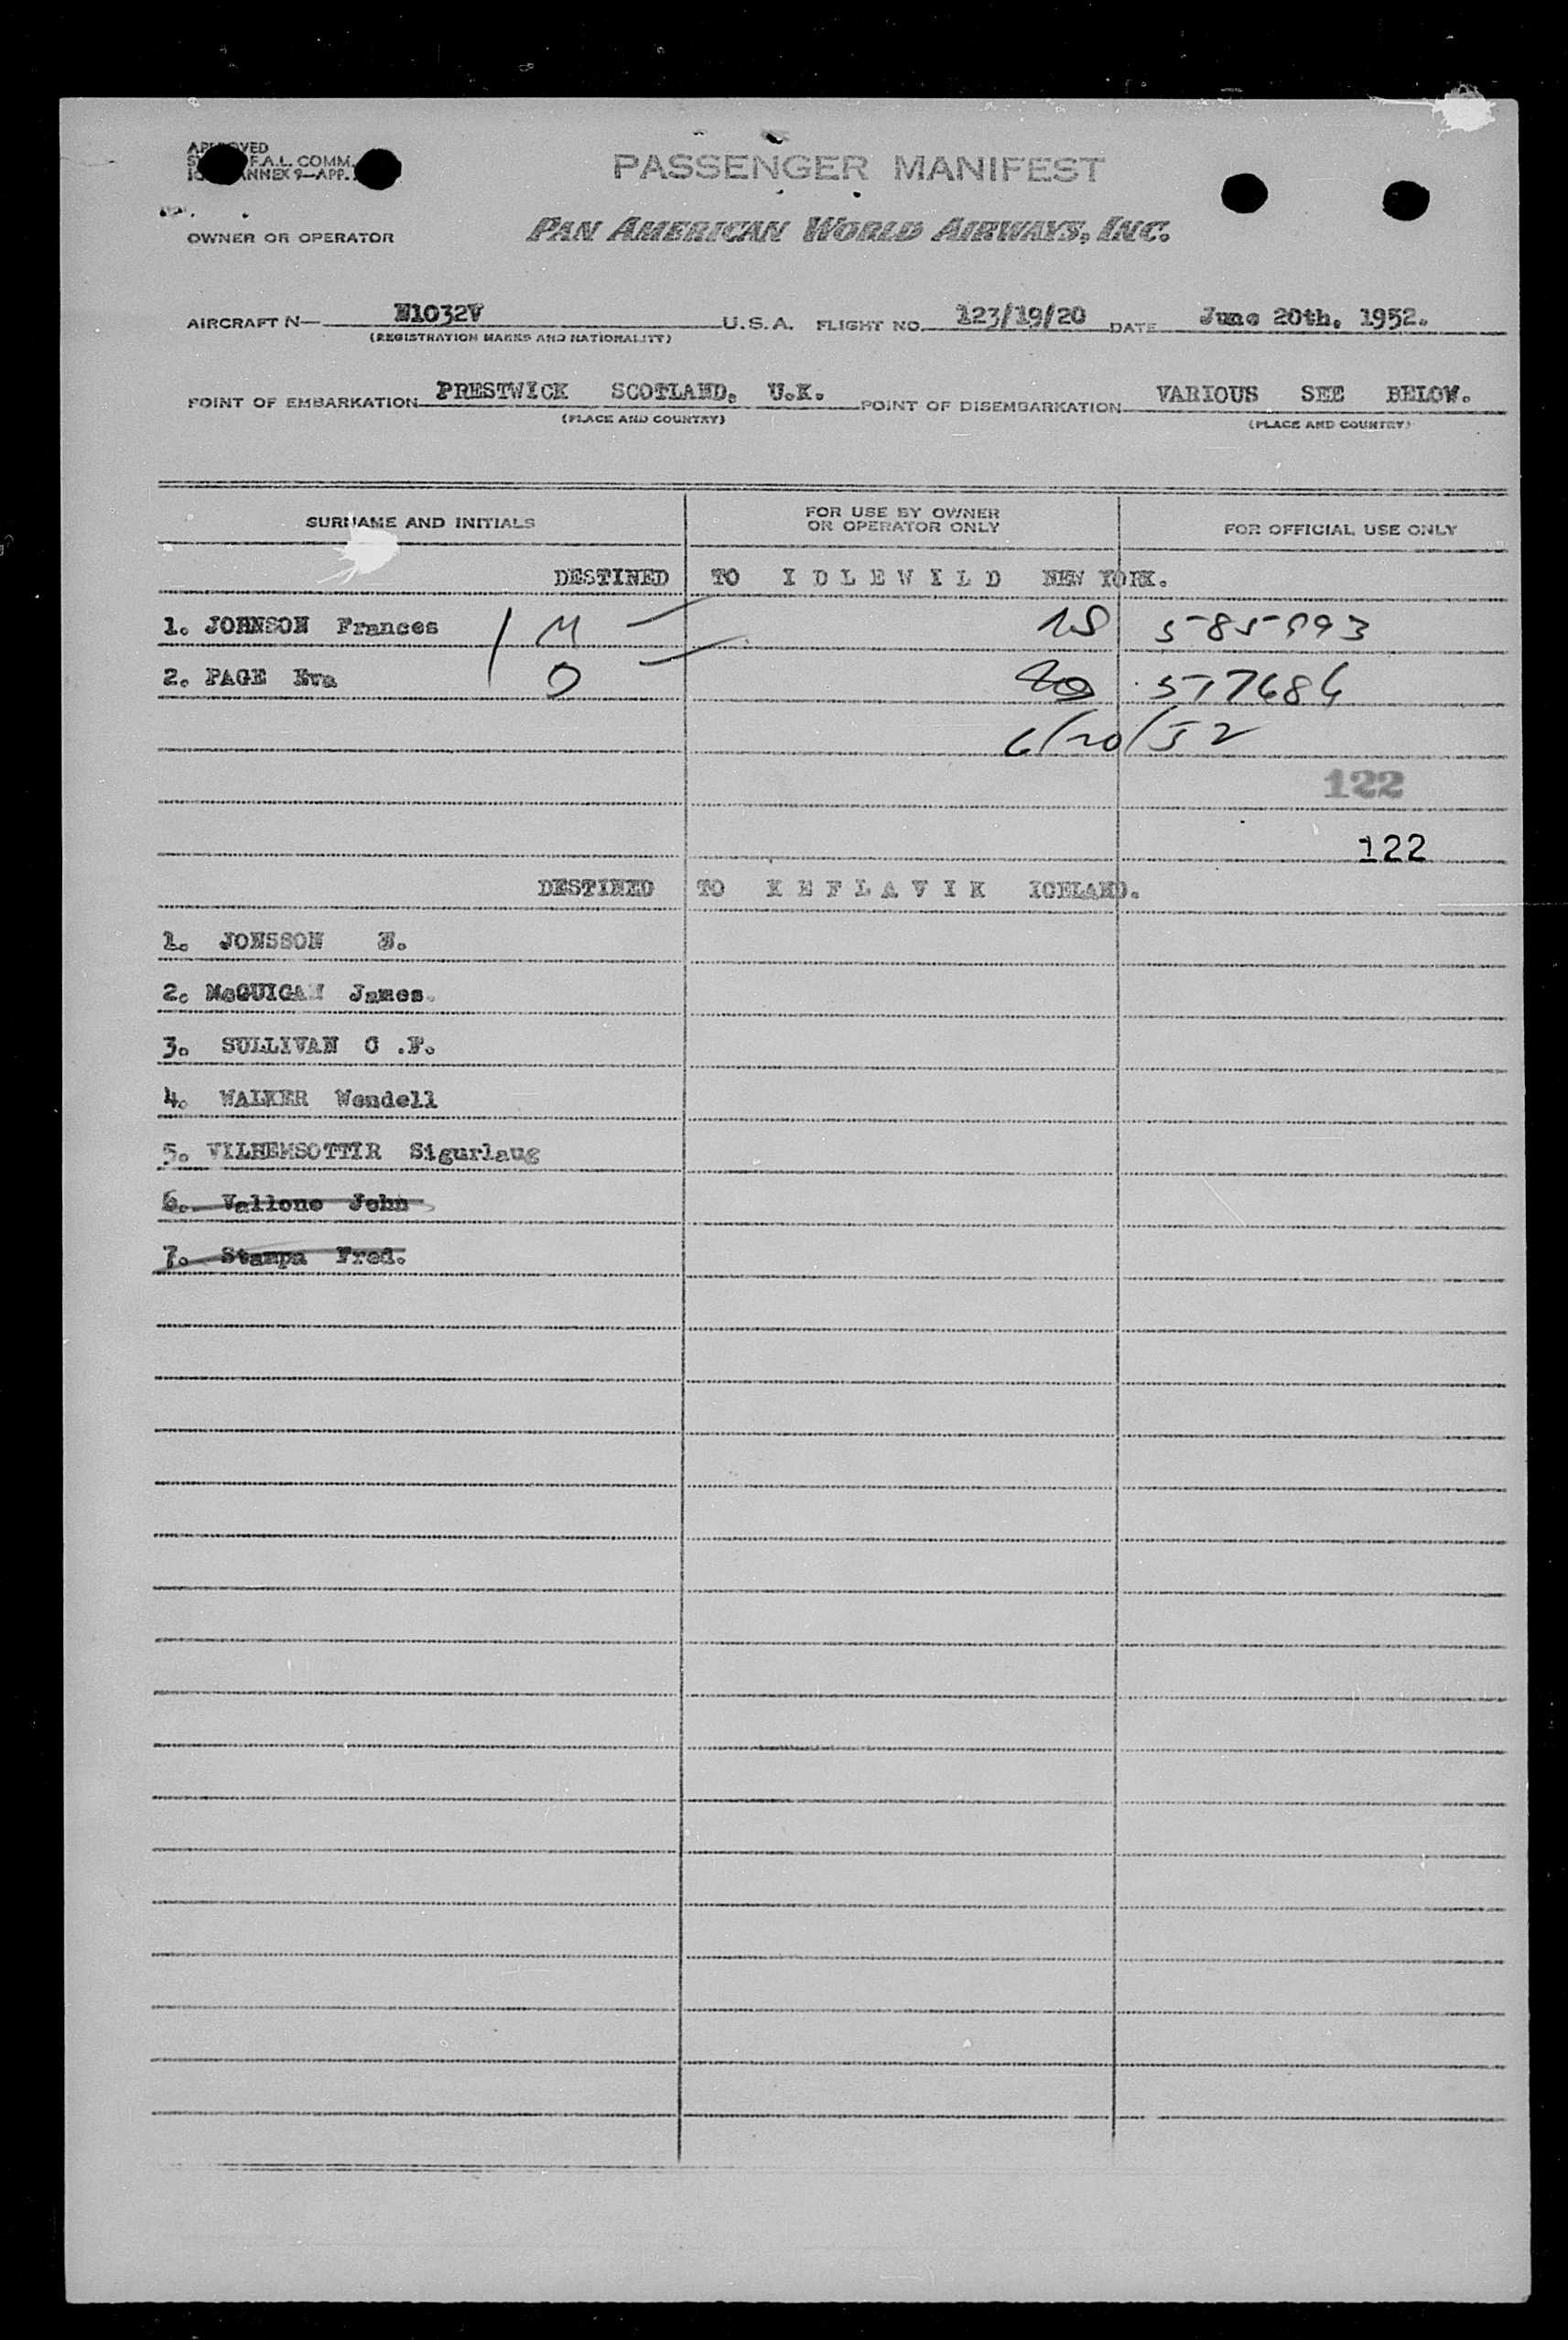 APPROVED
F.A.L. COMM.
ANNEX 9—APP.
PASSENGER MANIFEST
OWNER OR OPERATOR
PAN AMERICAN WORLD AIRWAYS, INC.
AIRCRAFT N— N1032V U.S.A. FLIGHT NO. 123/19/20 DATE June 20th, 1952.
(REGISTRATION MARKS AND NATIONALITY)
POINT OF EMBARKATION PRESTWICK SCOTLAND, U.K. POINT OF DISEMBARKATION VARIOUS SEE BELOW.
(PLACE AND COUNTRY) (PLACE AND COUNTRY)
SURNAME AND INITIALS FOR USE BY OWNER OR OPERATOR ONLY FOR OFFICIAL USE ONLY
DESTINED TO I D L E W I L D NEW YORK.
1. JOHNSON Frances M
2. PAGE Eva
6/20/52
122
122
DESTINED TO K E F L A V I K ICELAND.
1. JONSSON
2. McGUIGAN James.
3. SULLIVAN C .F.
4. WALKER Wendell
5. VILHEMSOTTIR Sigurlaug
6. Vallone John
7. Stampa Fred.